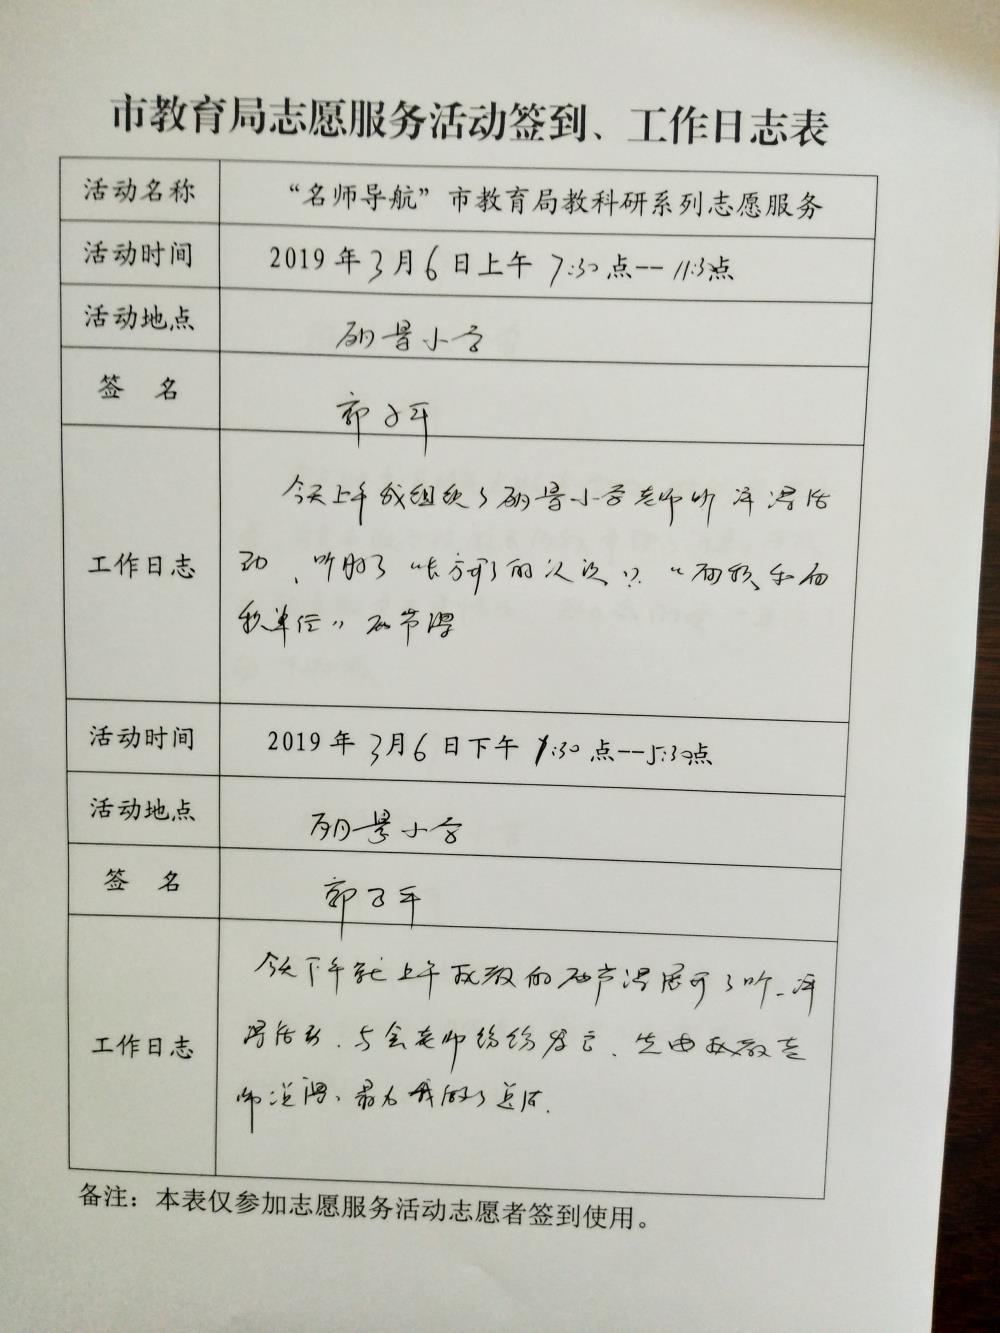 市教育局志愿服务活动签到、工作日志表
活动名称 “名师导航”市教育局教科研系列志愿服务
活动时间 2019年3月6日上午7:30点--11:30点
活动地点 丽景小学
签 名 郭子平
今天上午我组织了丽景小学老师听评课活
工作日志 动、听的了“长方形的认识”、“面积和面
积单位”两节课
活动时间 2019年3月6日下午1:30点--5:30点
活动地点 丽景小学
签 名 郭子平
今天下午就上午执教的两节课展开了听、评
工作日志 课活动、与会老师纷纷发言、先由执教老
师说课、最后我做了总结.
备注：本表仅参加志愿服务活动志愿者签到使用。